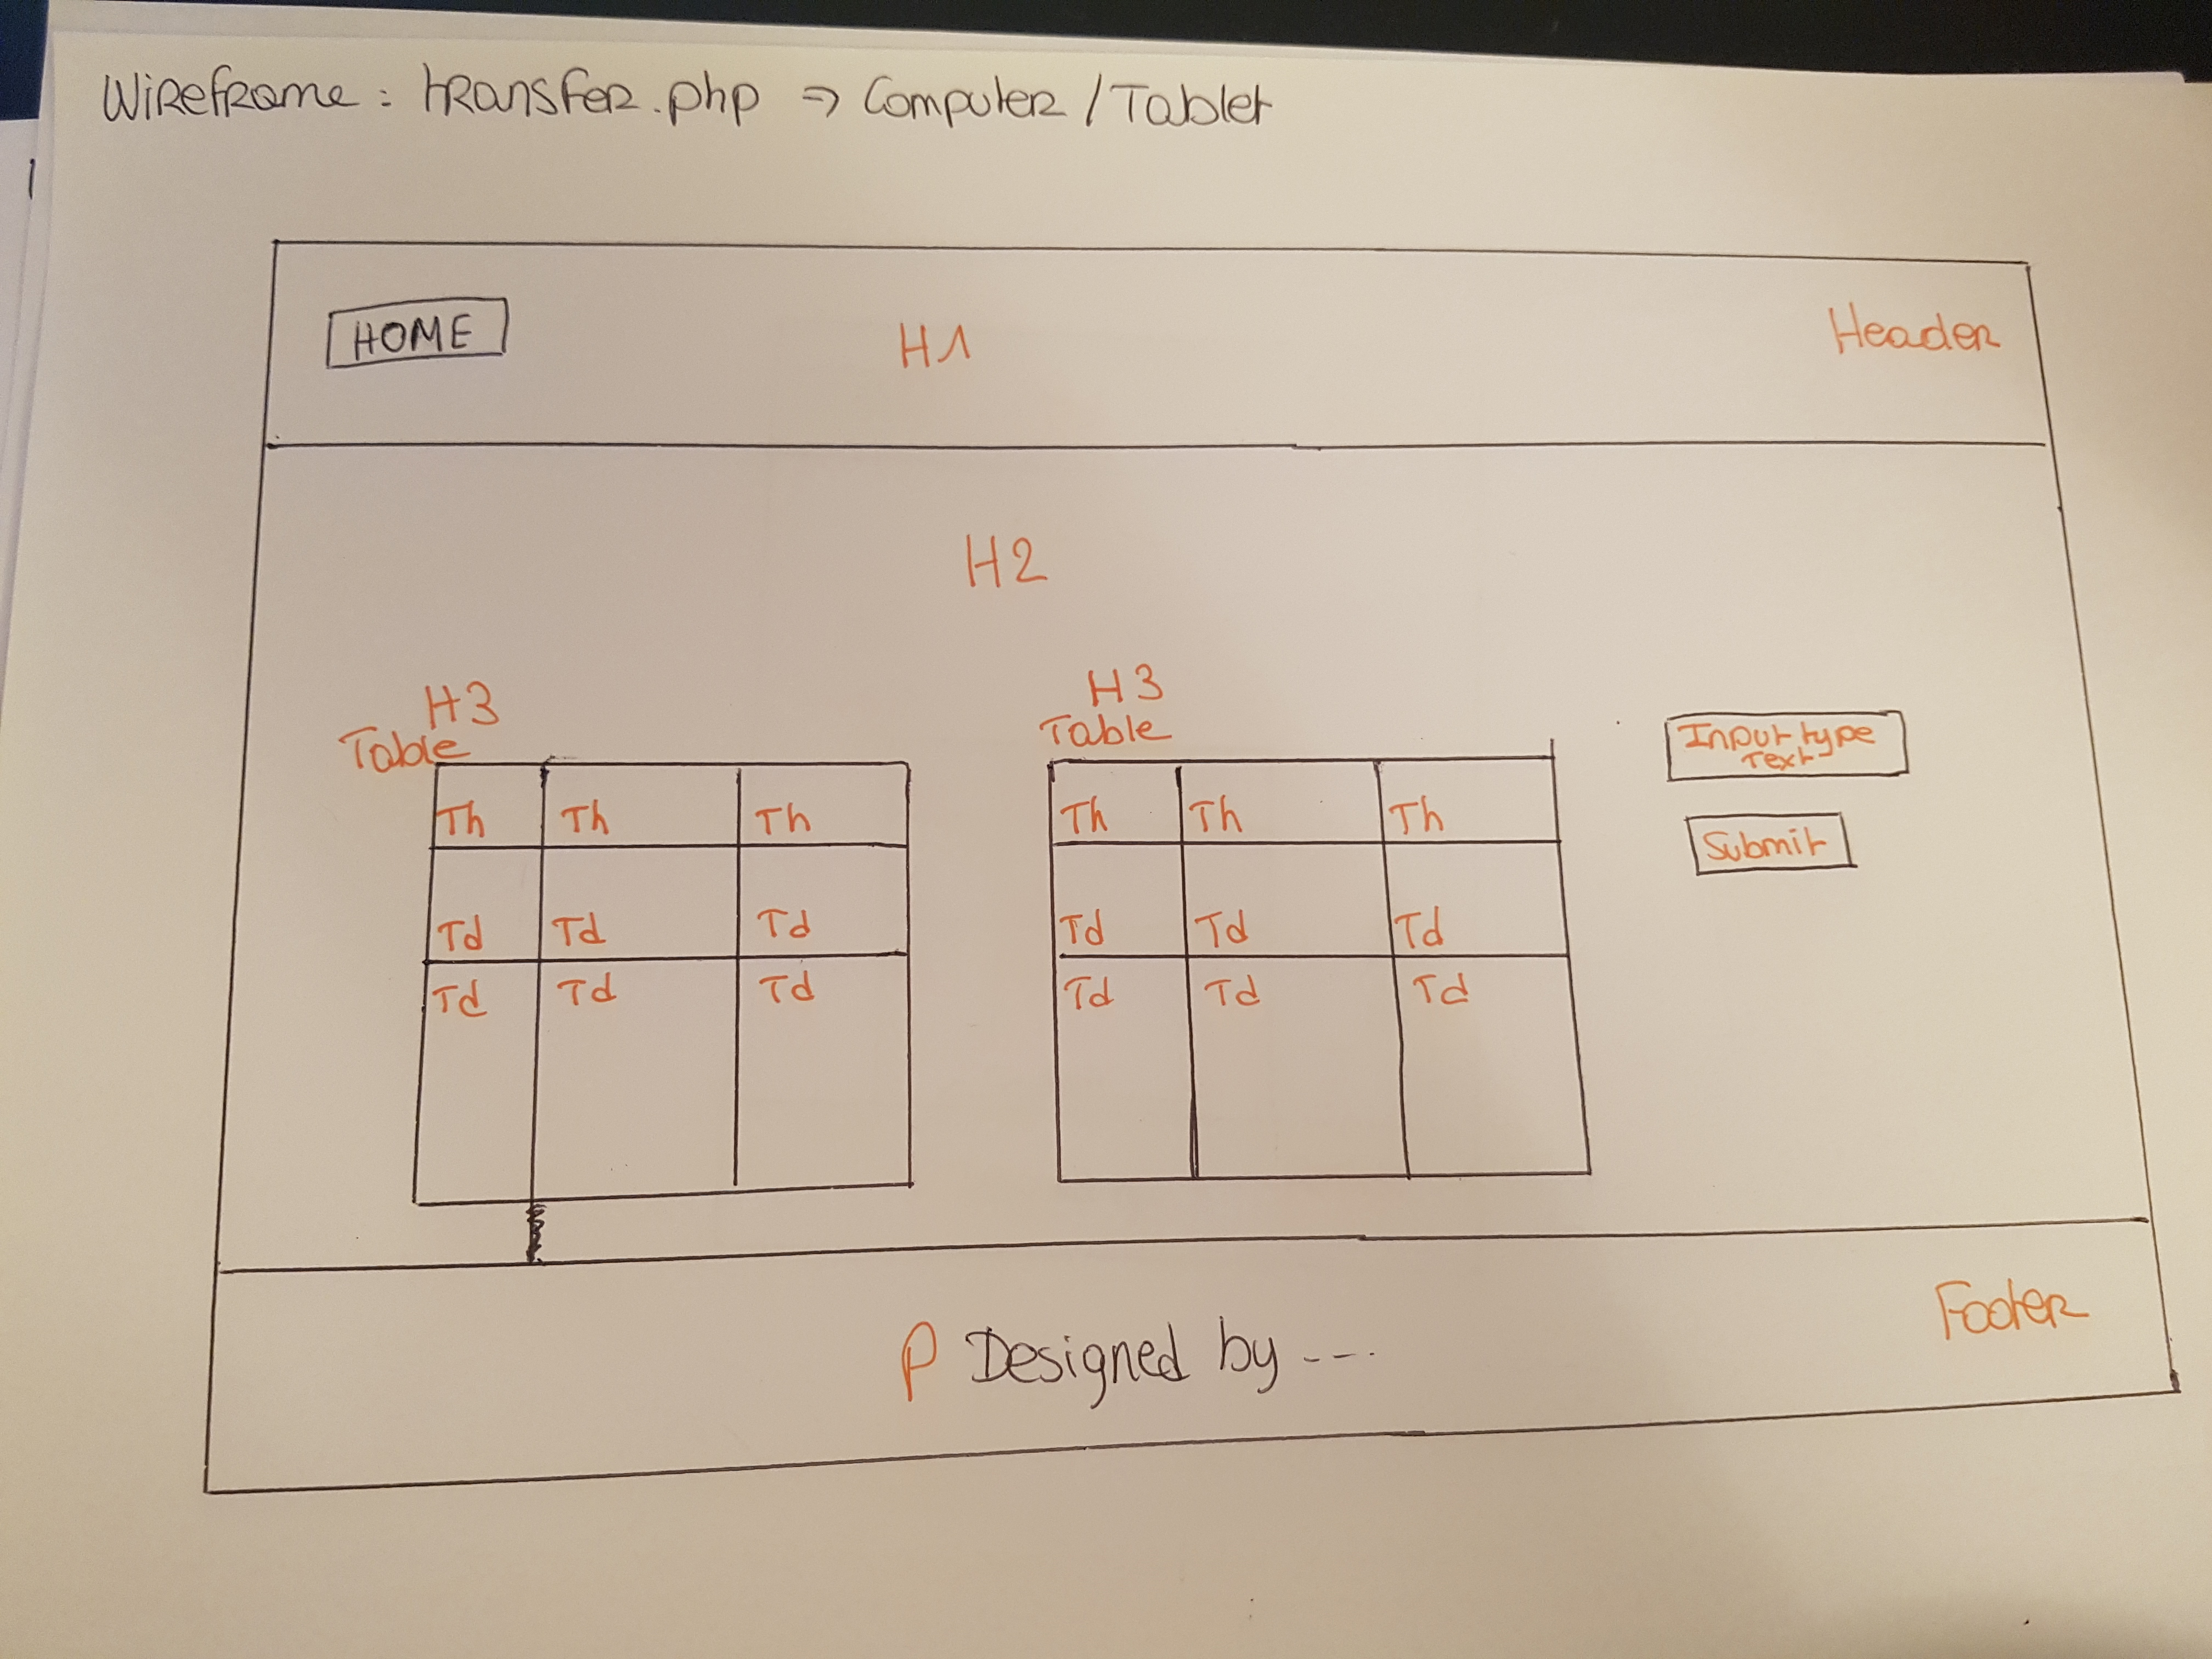 Wireframe: transfer.php => Computer / Tablet
HOME H1 Header
H2
H3
Table
Th Th Th
Td Td Td
Td Td Td
H3
Table
Th Th Th
Td Td Td
Td Td Td
Input type
Text
Submit
P Designed by ----
Footer